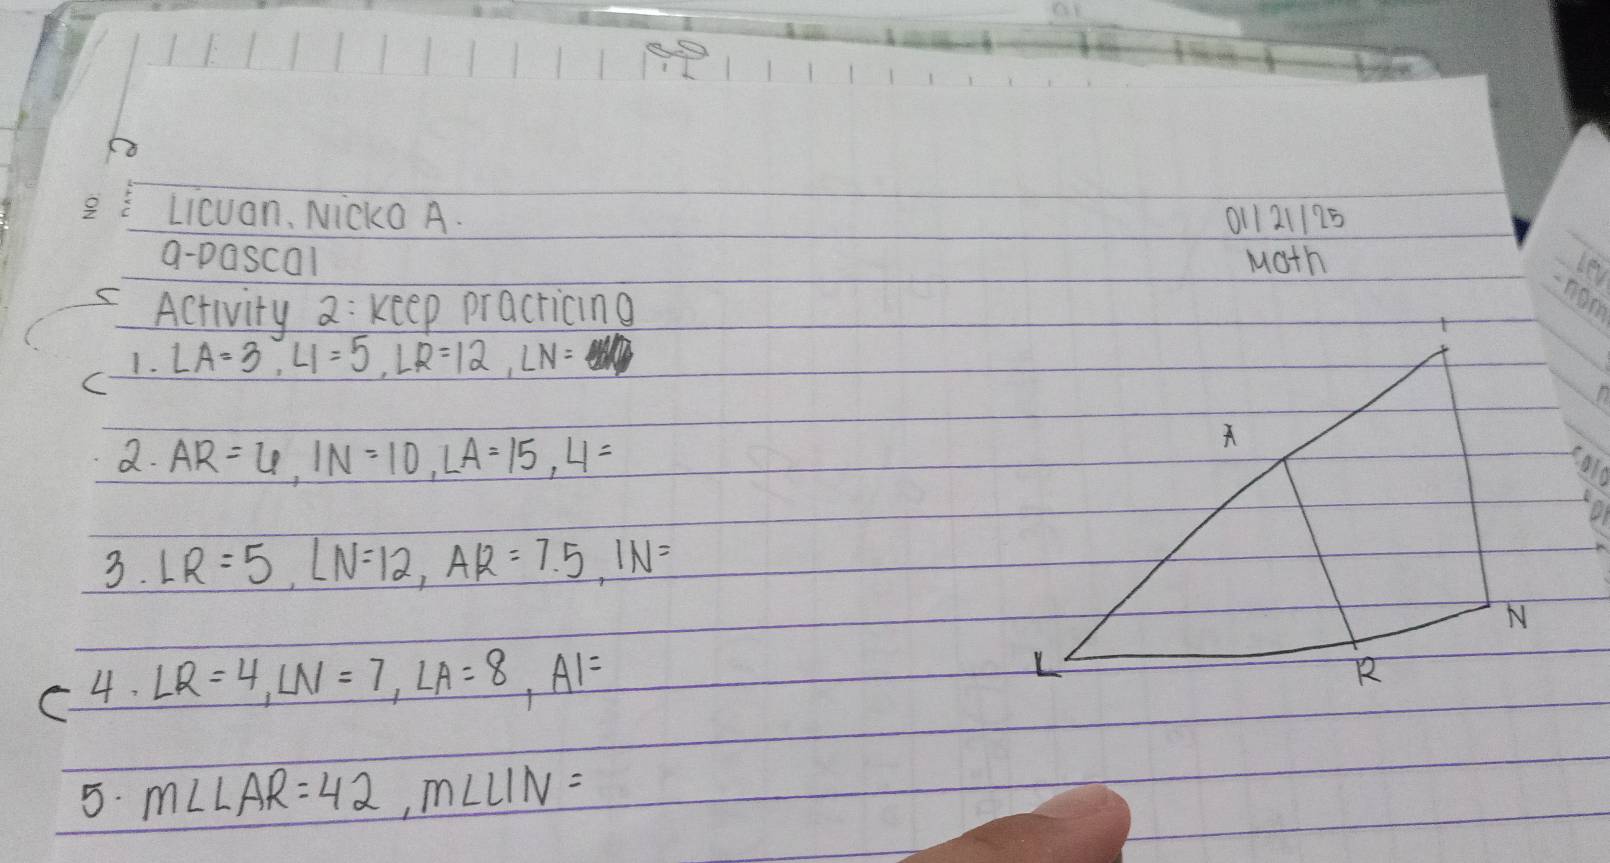 NO.
Licuan, Nicko A.
01/21/25
9-pascal
Math
Activity 2: Keep practicing
1. LA=3, LI=5, LR=12, LN=
2. AR=6, IN=10, LA=15, LI=
3. LR=5, LN=12, AR=7.5, IN=
4. LR=4, LN=7, LA=8, AI=
5. m∠LAR=42, m∠LIN=
I
A
N
L
R